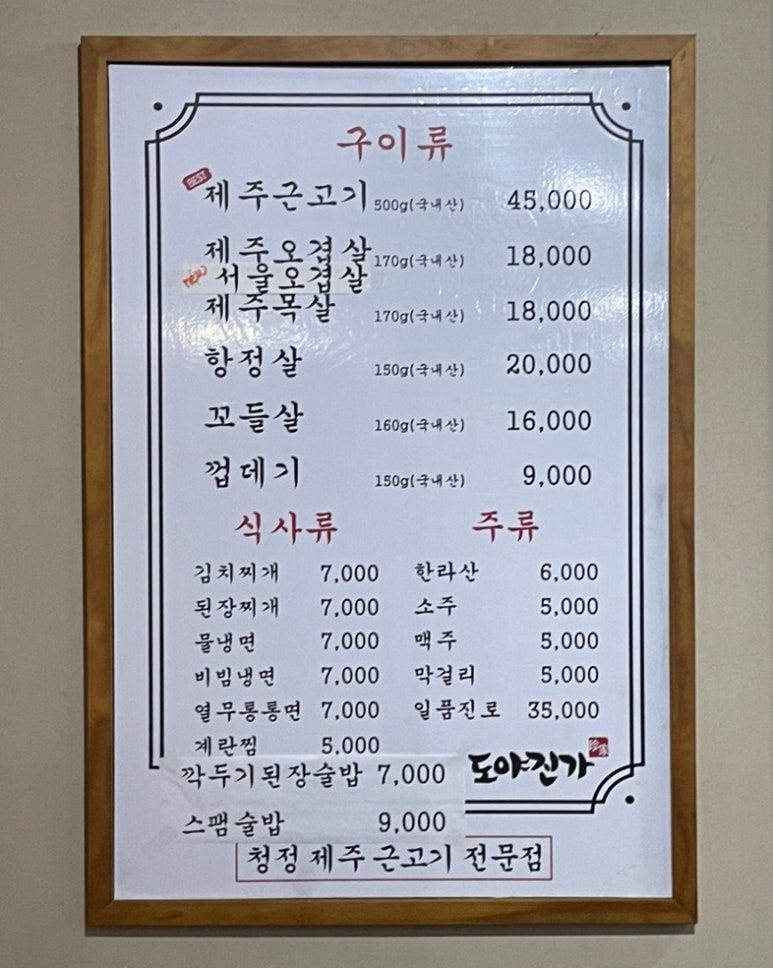 구이류
BEST
제주근고기 500g(국내산) 45,000
제주오겹살 170g(국내산) 18,000
new 서울오겹살
제주목살 170g(국내산) 18,000
항정살 150g(국내산) 20,000
꼬들살 160g(국내산) 16,000
껍데기 150g(국내산) 9,000
식사류
김치찌개 7,000
된장찌개 7,000
물냉면 7,000
비빔냉면 7,000
열무통통면 7,000
계란찜 5,000
깍두기된장술밥 7,000
스팸술밥 9,000
주류
한라산 6,000
소주 5,000
맥주 5,000
막걸리 5,000
일품진로 35,000
도야진가
청정 제주 근고기 전문점